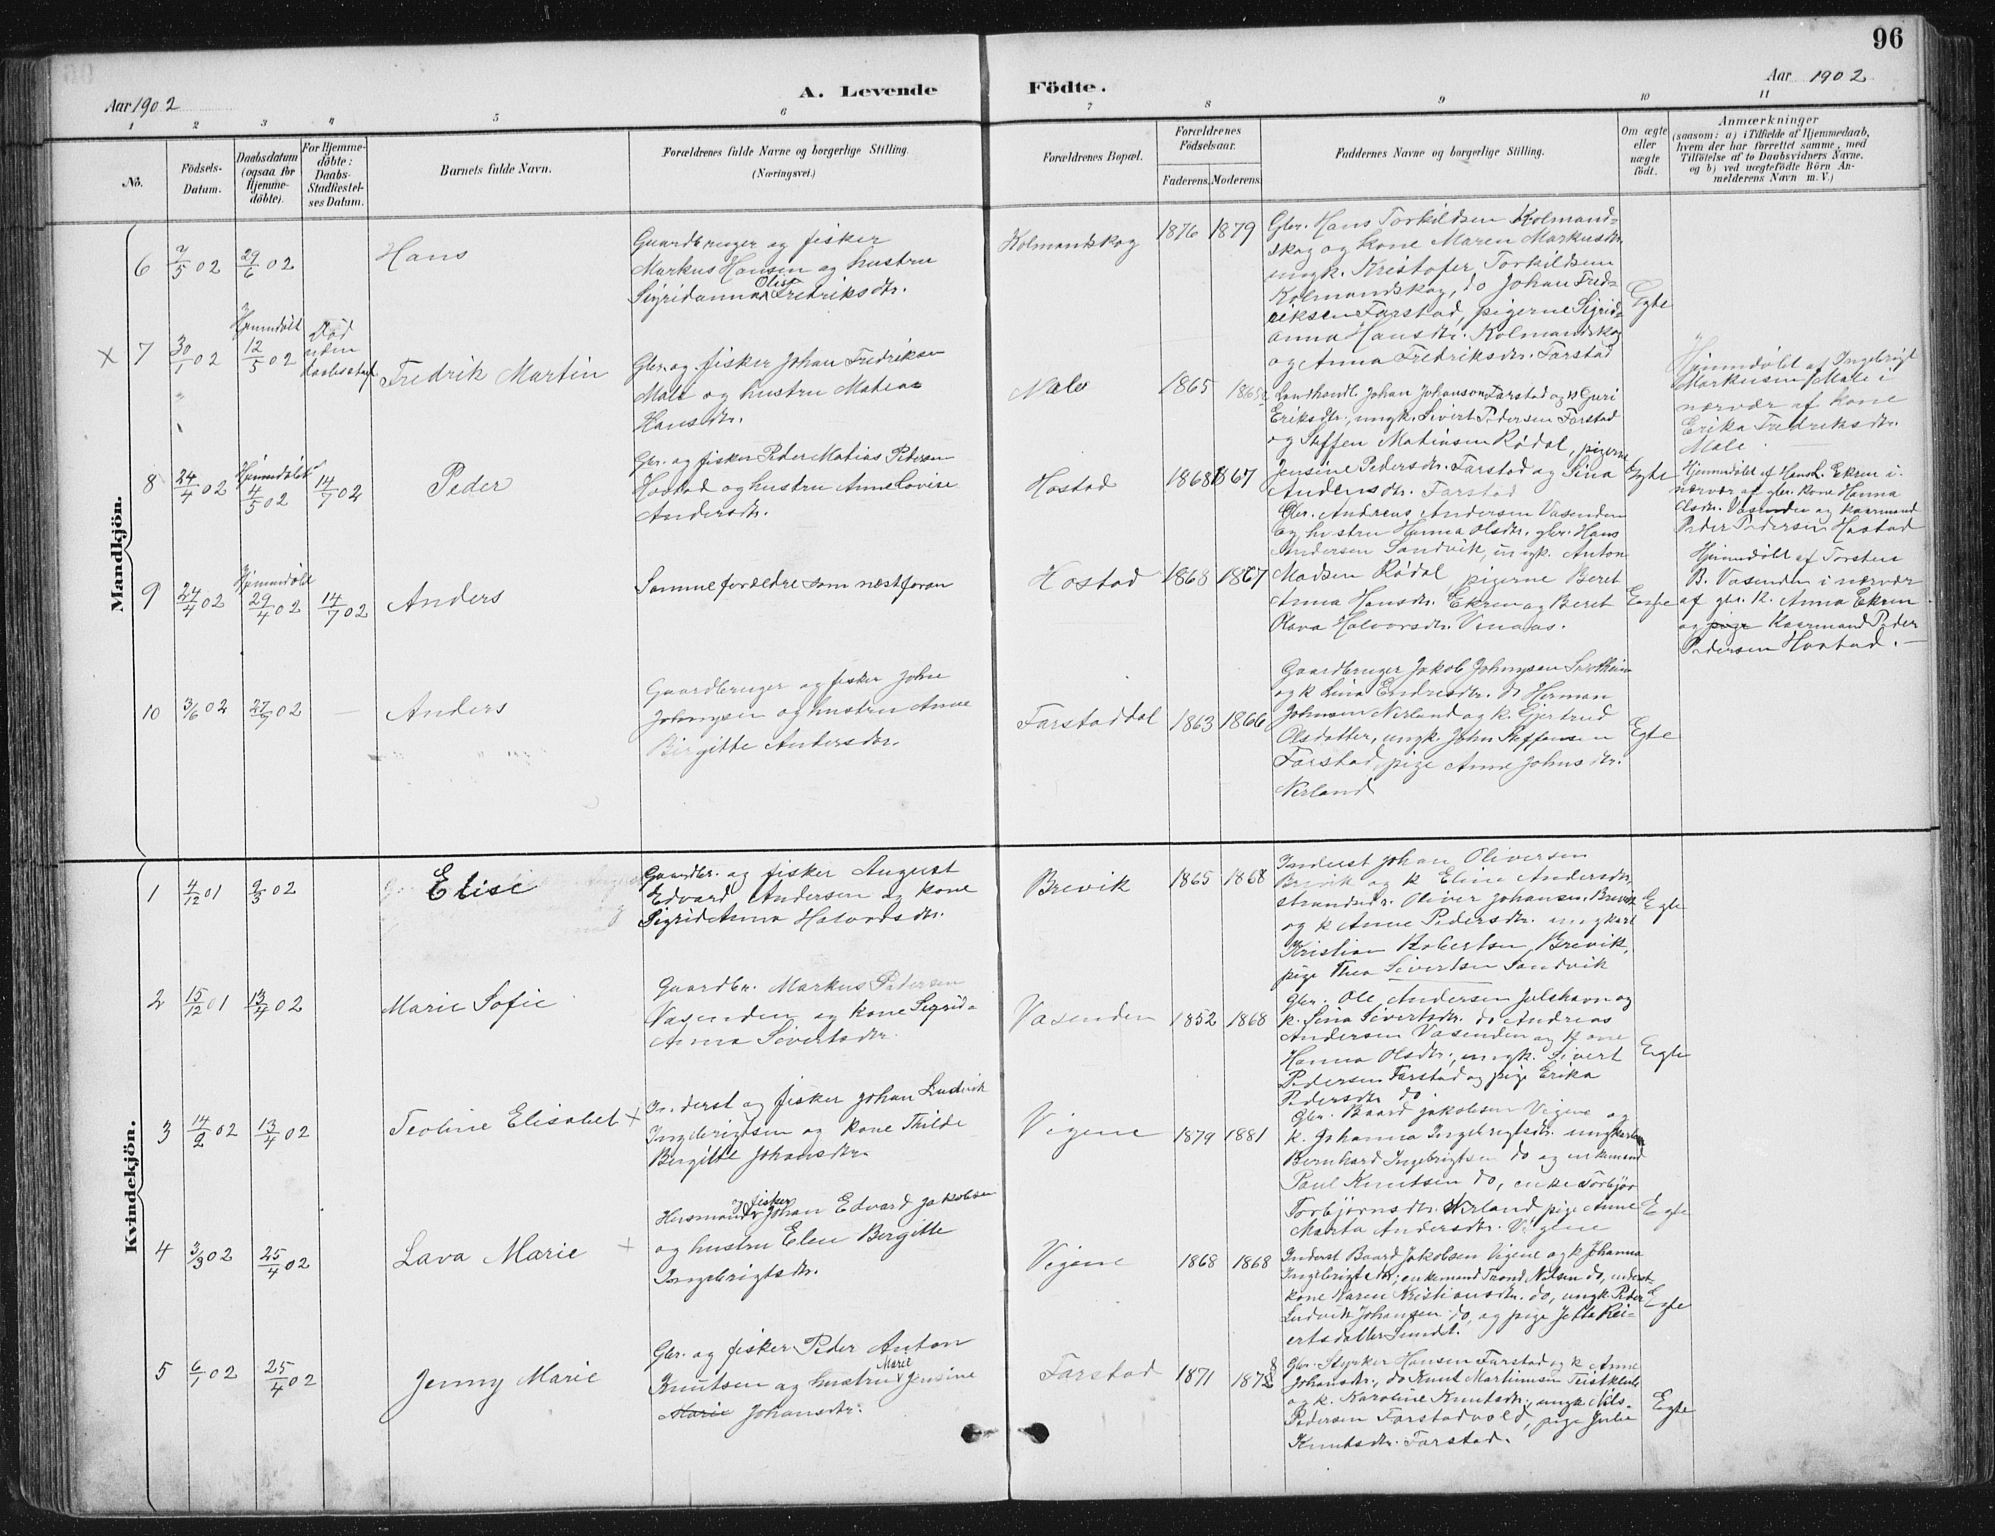 96
Aar 1902
A. Levende
Födte.
Aar 1902
1 2 3 4 5 6 7 8 9 10 11
No.
Födsels-
Datum.
Daabsdatum
(ogsaa for
Hjemme-
döbte).
For Hjemme-
döbte:
Daabs-
Stadfæstel-
ses Datum.
Barnets fulde Navn.
Forældrenes fulde Navne og borgerlige Stilling.
(Næringsvei.)
Forældrenes Bopæl.
Forældrenes
Födselsaar.
Faderens. Moderens.
Faddernes Navne og borgerlige Stilling.
Om ægte
eller
uægte
födt.
Anmærkninger
(saasom: a) i Tilfælde af Hjemmedaab,
hvem der har forrettet samme, med
Tilföielse af to Daabsvidners Navne,
og b) ved uægtefödte Börn An-
melderens Navn m. V.)
Mandkjön.
6 7/5 02 29/6 02
Hans
Gaardbruger og fisker
Markus Hansen og hustru
Sigridanna Oline Fredriksdtr.
Kolmandskog
1876 1879
Gbr. Hans Torkildsen Kolmand-
skog og kone Maren Markusdtr.
ungk. Kristofer Torkildsen
Kolmandskog, do Johan Fred-
riksen Farstad, pigerne Sigrid-
anna Hansdtr. Kolmandskog
og Anna Fredriksdtr. Farstad
Egte
× 7 30/1 02
Hjemmdöbt
12/5 02
Död
uden
daabsstadf.
Fredrik Martin
Gbr. og fisker Johan Fredriksen
Male og hustru Matea
Hansdtr.
Male
1865 1865
Landhandl. Johan Johanson Farstad og k Guri
Eriksdtr., ungk. Sivert Pedersen Farstad
og Steffen Matiasen Rödal, pigerne
Jensine Pedersdtr. Farstad og Sina
Andersdtr. Farstad
Egte
Hjemmdöbt af Ingebrigt
Markusen Male i
nærvær af kone
Erika Fredriksdtr.
Male.
8 24/4 02
Hjemmdöbt
4/5 02
14/7 02
Peder
Gbr. og fisker Peder Matias Pedersen
Hostad og hustru Anne Lovise
Andersdtr.
Hostad
1868 1867
Gbr. Andreas Andersen Vasenden
og hustru Hanna Olsdtr. gbr. Hans
Andersen Sandvik, ungk. Anton
Madsen Rödal, pigerne Beret
Anna Hansdtr. Ekren og Beret
Olava Halvorsdtr. Vinaas.
Hjemmdöbt af Hans L. Ekren i
nærvær af gbr. kone Hanna
Olsdtr. Vasenden og kaarmand
Peder Pedersen Hostad
9 24/4 02
Hjemmdöbt
29/4 02
14/7 02
Anders
Samme forældre som næstforan
Hostad
1868 1867
Egte
Hjemmdöbt af Torsten
B. Vasenden i nærvær
af gbr. k. Anna Ekren
og pige Kaarmand Peder
Pedersen Hostad.
10 3/6 02 27/7 02 —
Anders
Gaardbruger og fisker John
Johnsen og hustru Anne
Birgitte Andersdtr.
Farstaddal
1863 1866
Gaardbruger Jakob Johnsen
og k Lina Endresdtr. do Herman
Johnsen Nerland og k. Gjertrud
Olsdatter, ungk. John Steffensen
Farstad, pige Anne Johnsdtr.
Nerland
Egte
Kvindekjön.
1 4/12 01 2/3 02
Elise
Gaardbr. og fisker August
Edvard Andersen og kone
Sigrid Anna Halvorsdtr.
Brevik
1865 1868
Inderst Johan Oliversen
Brevik og k Eline Andersdtr.
strandsd. Oliver Johansen Brevik
og k Anne Pedersdtr. ungkarl
Kristian Robertsen Brevik,
pige Thea Sivertsen Sandvik
Egte
2 15/12 01 13/4 02
Marie Sofie
Gaardbr. Markus Pedersen
Vasenden og kone Sigrid-
Anna Sivertsdtr.
Vasenden
1852 1868
Gbr. Ole Andersen Julshavn og
k. Sina Sivertsdtr. do Andreas
Andersen Vasenden og Kone
Hanna Olsdtr., ungk. Sivert
Pedersen Farstad og pige Erika
Pedersdtr. do.
Egte
3 14/2 02 13/4 02
Teoline Elisabet ×
Inderst og fisker Johan Ludvik
Ingebrigtsen og kone Thilde
Birgitte Johansdtr.
Vigene
1879 1881
Gbr. Baard Jakobsen Vigene og
k. Johanna Ingebrigtsdtr. ungkarl
Bernhard Ingebrigtsen do og enkemand
Paul Knutsen do, enke Torbjör
Torbjörnsdtr. Nerland pige Anne
Marta Andersdtr. Vigene
Egte
4 3/3 02 25/4 02
Lava Marie ×
og fisker
Husmand Johan Edvard Jakobsen
og hustru Elen Birgitte
Ingebrigtsdtr.
Vigene
1868 1868
Inderst Baard Jakobsen Vigene og k Johanna
Ingebrigtsdtr; enkemand Trond Nilsen do, inderst-
kone Karen Kristiansdtr. do, ungk. Peder
Ludvik Johansen do, og pige Jetta Rei-
ertsdatter Sundet.
Egte
5 6/1 02 25/4 02
Jenny Marie
Gbr. og fisker Peder Anton
Knutsen og hustru Marie Jensine
Marie Johansdtr.
Farstad
1871 1878
Gbr. Styrker Hansen Farstad og k Anne
Johansdtr., do Knut Martinusen Teistklub
og k. Karoline Knutsdtr. ungk Nils
Pedersen Farstadvold, pige Julie
Knutsdtr. Farstad.
Egte